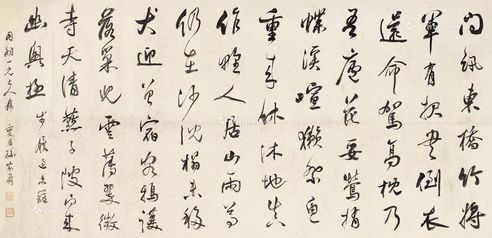 問訊東橋竹將
軍有報書倒衣
還命駕高枕乃
吾廬花妥鶯捎
蝶溪喧獺魚
重來休沐地真
作野人居山雨尊
仍在沙沈榻未移
犬迎曾宿客鴉護
落巢兒雲薄翠微
寺天清子陂向來
幽興極步屧過東籬